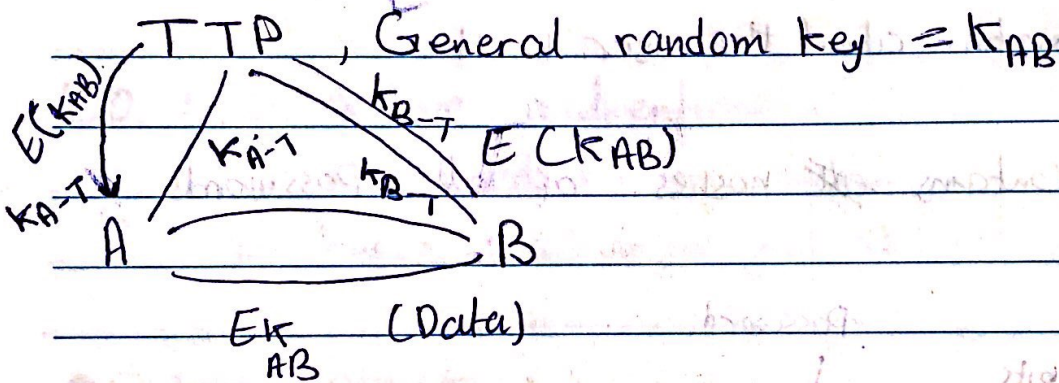 TTP, General random key = KAB
E(KAB)
KB-T
KA-T
KB-T
E(KAB)
KA-T
A
B
EKAB (Data)